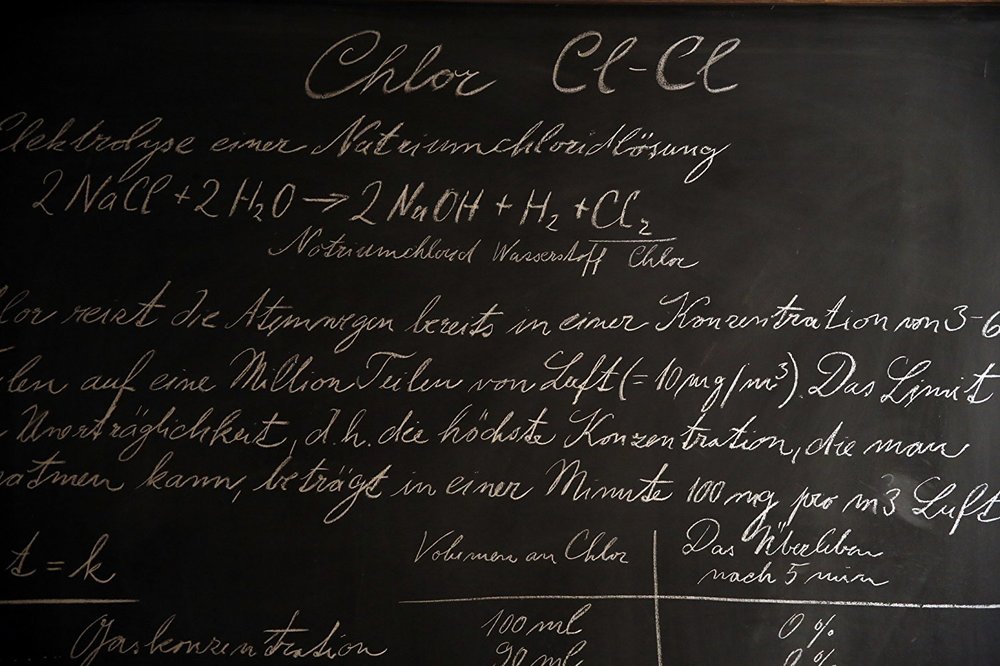 Chlor Cl-Cl
Elektrolyse einer Natriumchloridlösung
2 NaCl + 2 H₂O → 2 NaOH + H₂ + Cl₂
Natriumchlorid Wasserstoff Chlor
lor reizt die Atemwegen bereits in einer Konzentration von 3-6
ilen auf eine Million Teilen von Luft (= 10 mg/m³). Das Limit
Unerträglichkeit, d.h. die höchste Konzentration, die man
atmen kann, beträgt in einer Minute 100 mg pro m3 Luft
t = k
Volumen an Chlor
Das Überleben
nach 5 min
Gaskonzentration 100 ml 0 %
90 ml 0 %